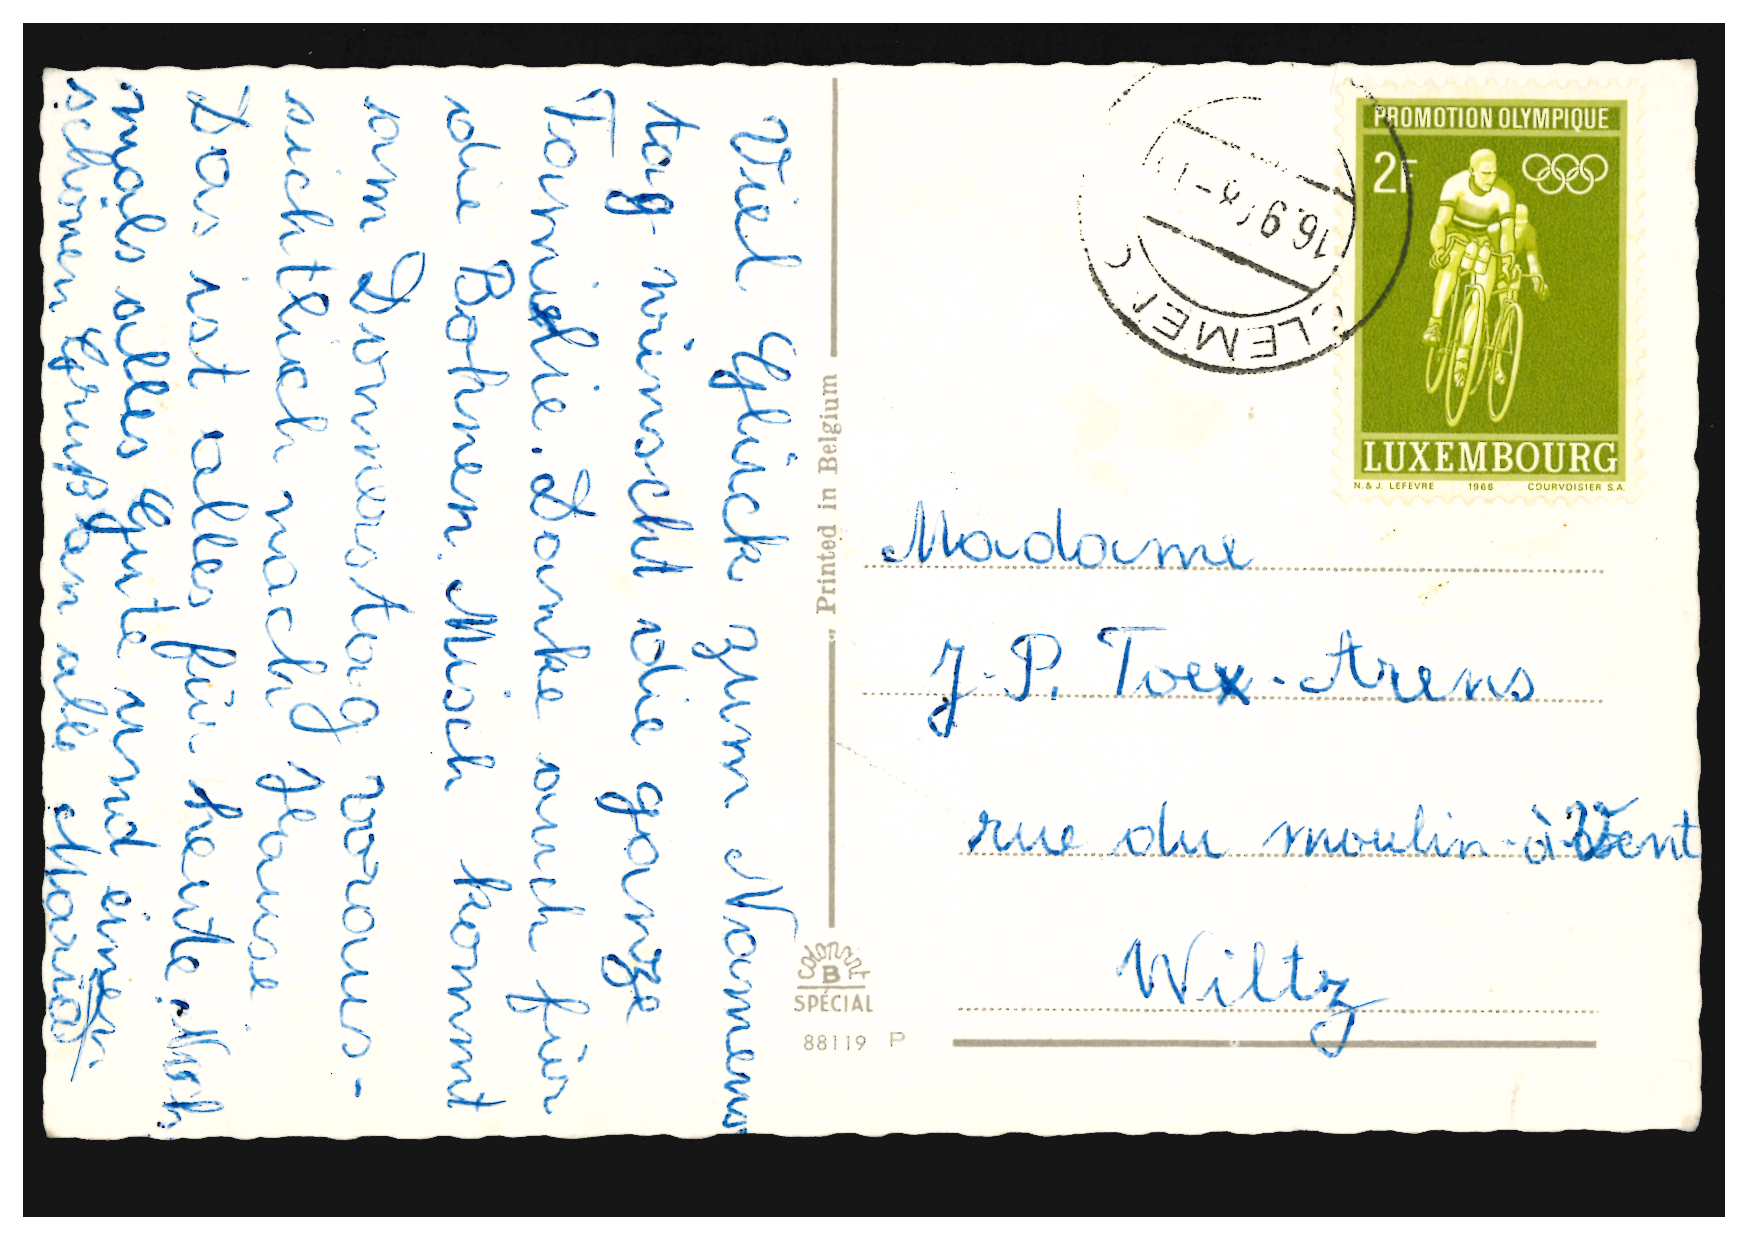 Viel Glück zum Namens
tag wünscht die ganze
Familie. Danke auch für
die Bohnen. Misch kommt
am Donnerstag voraus-
sichtlich nach Hause
Das ist alles für heute. Noch
mals alles Gute und einen
schönen Gruß an alle Maria
Printed in Belgium
colorprint
B
SPÉCIAL
88119 P
16.9
PROMOTION OLYMPIQUE
2F
LUXEMBOURG
N. & J. LEFEVRE 1966 COURVOISIER S.A.
Madame
J.P. Toex-Arens
rue du moulin-à-Vent
Wiltz